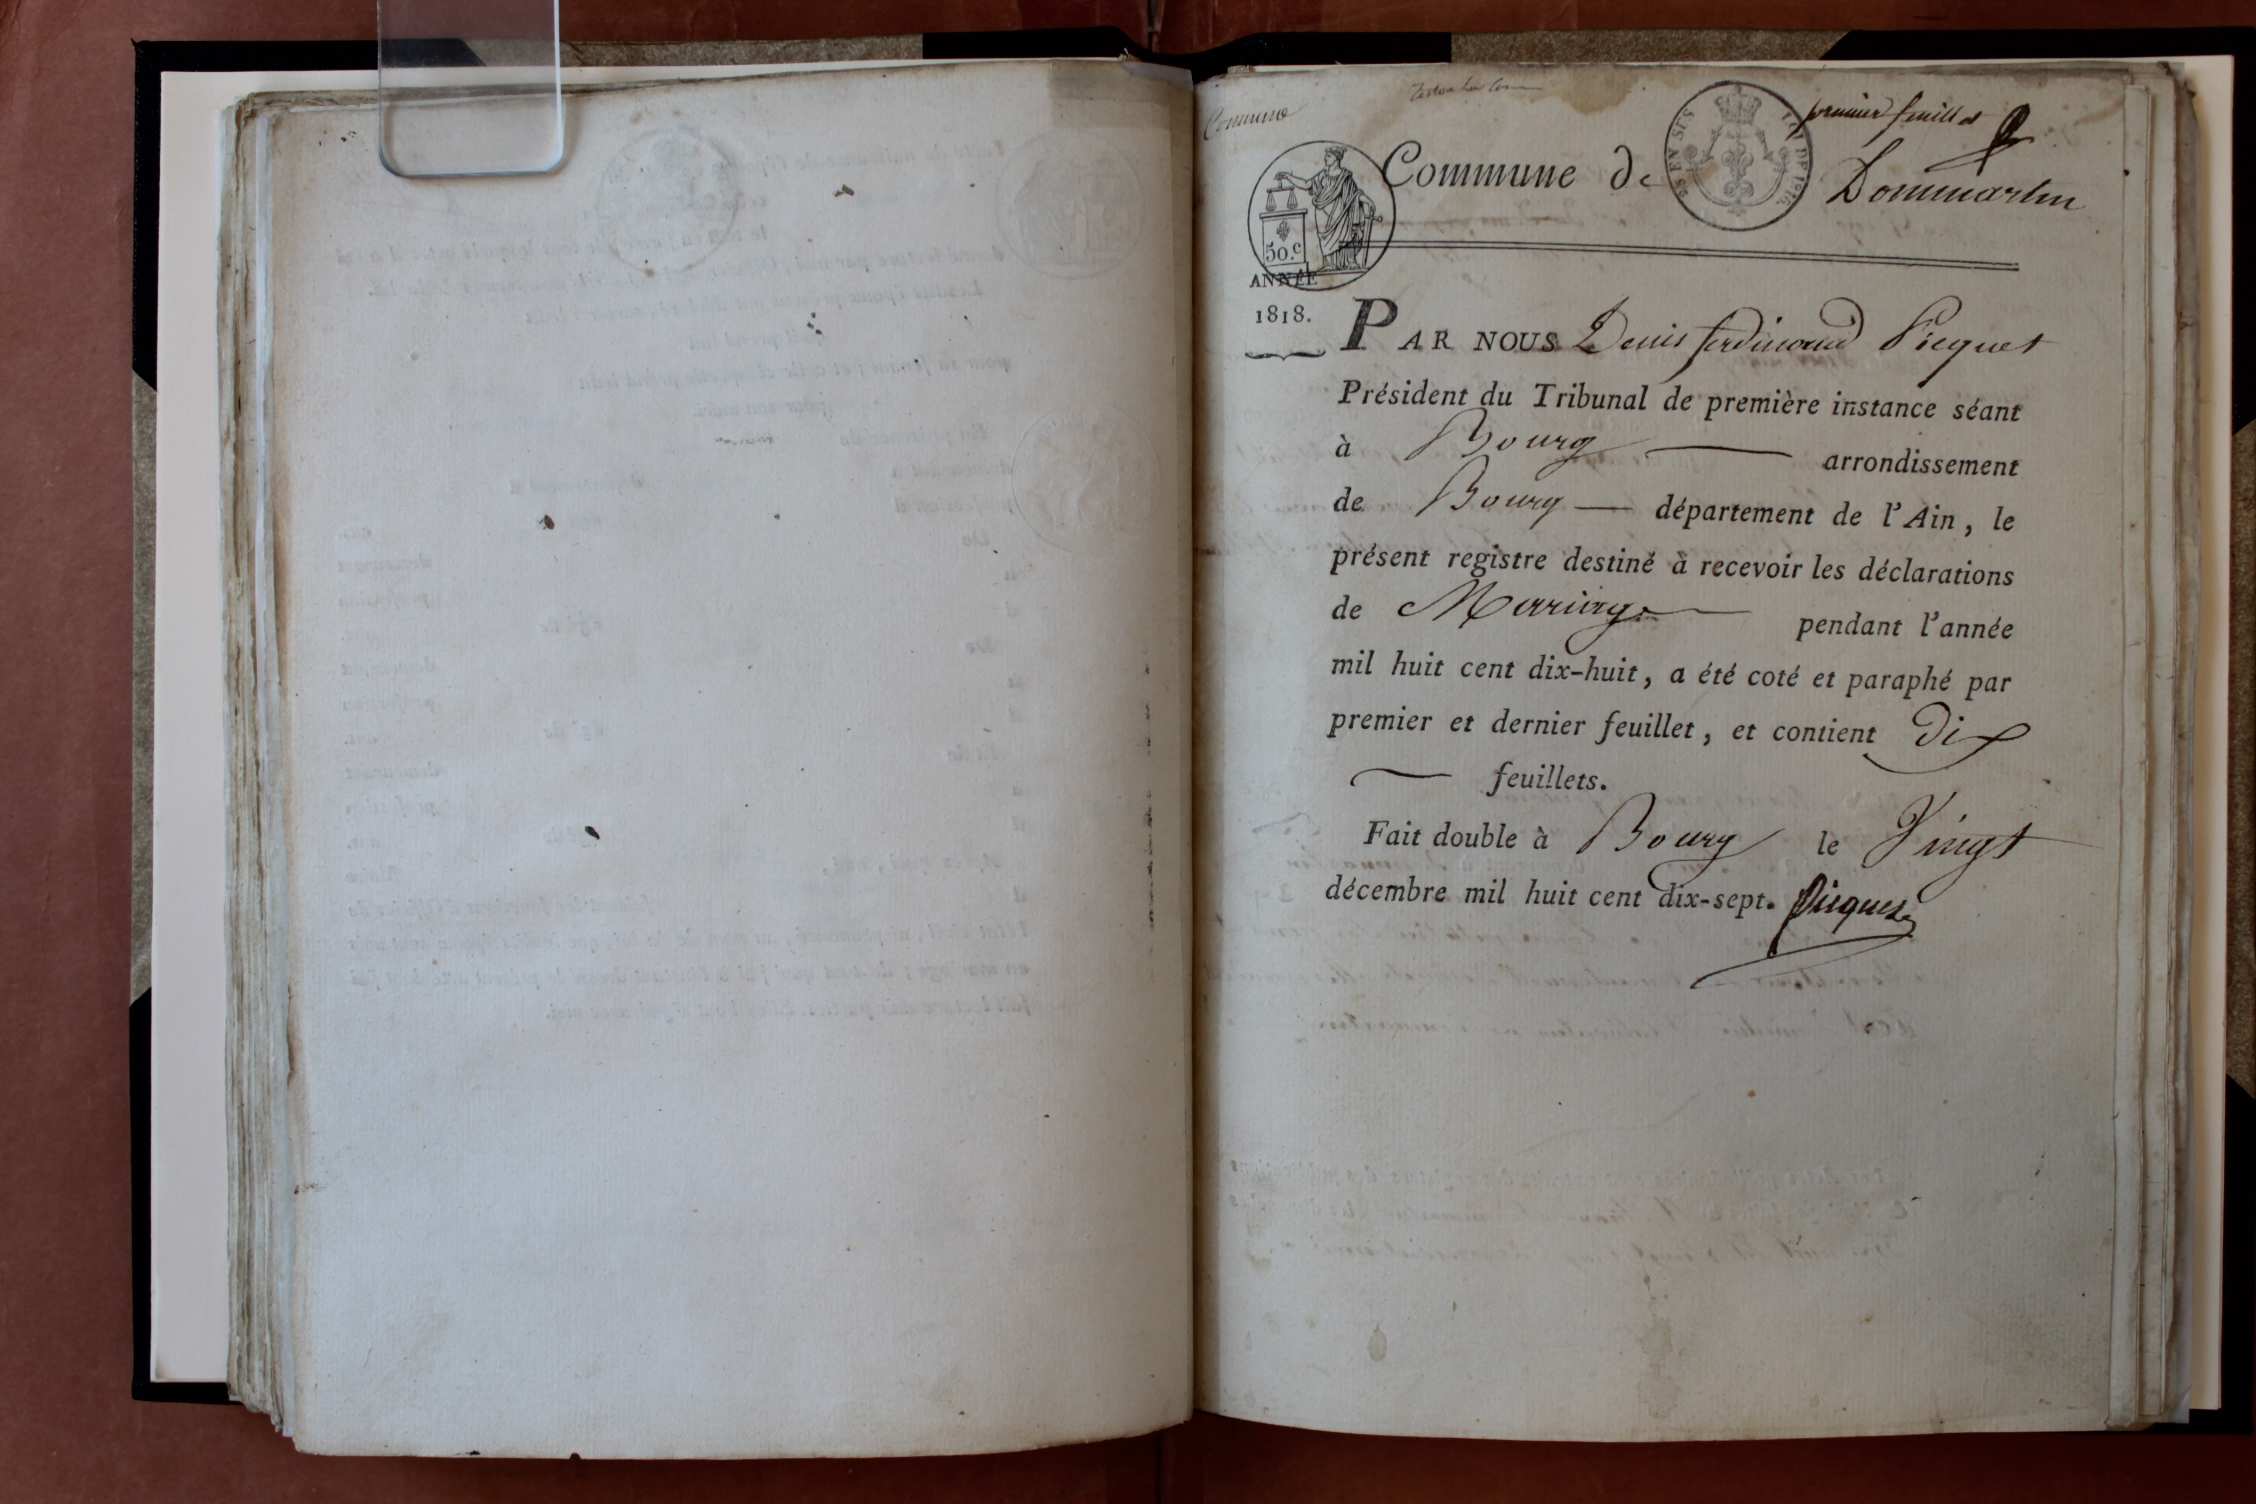 Commune
premier feuillet
Commune de Dommartin
50.c
ANNÉE
1818.
PAR NOUS Denis ferdinand Picquet
Président du Tribunal de première instance séant
à Bourg arrondissement
de Bourg département de l'Ain, le
présent registre destiné à recevoir les déclarations
de Mariage pendant l'année
mil huit cent dix-huit, a été coté et paraphé par
premier et dernier feuillet, et contient Dix
feuillets.
Fait double à Bourg le Vingt
décembre mil huit cent dix-sept. Picquet